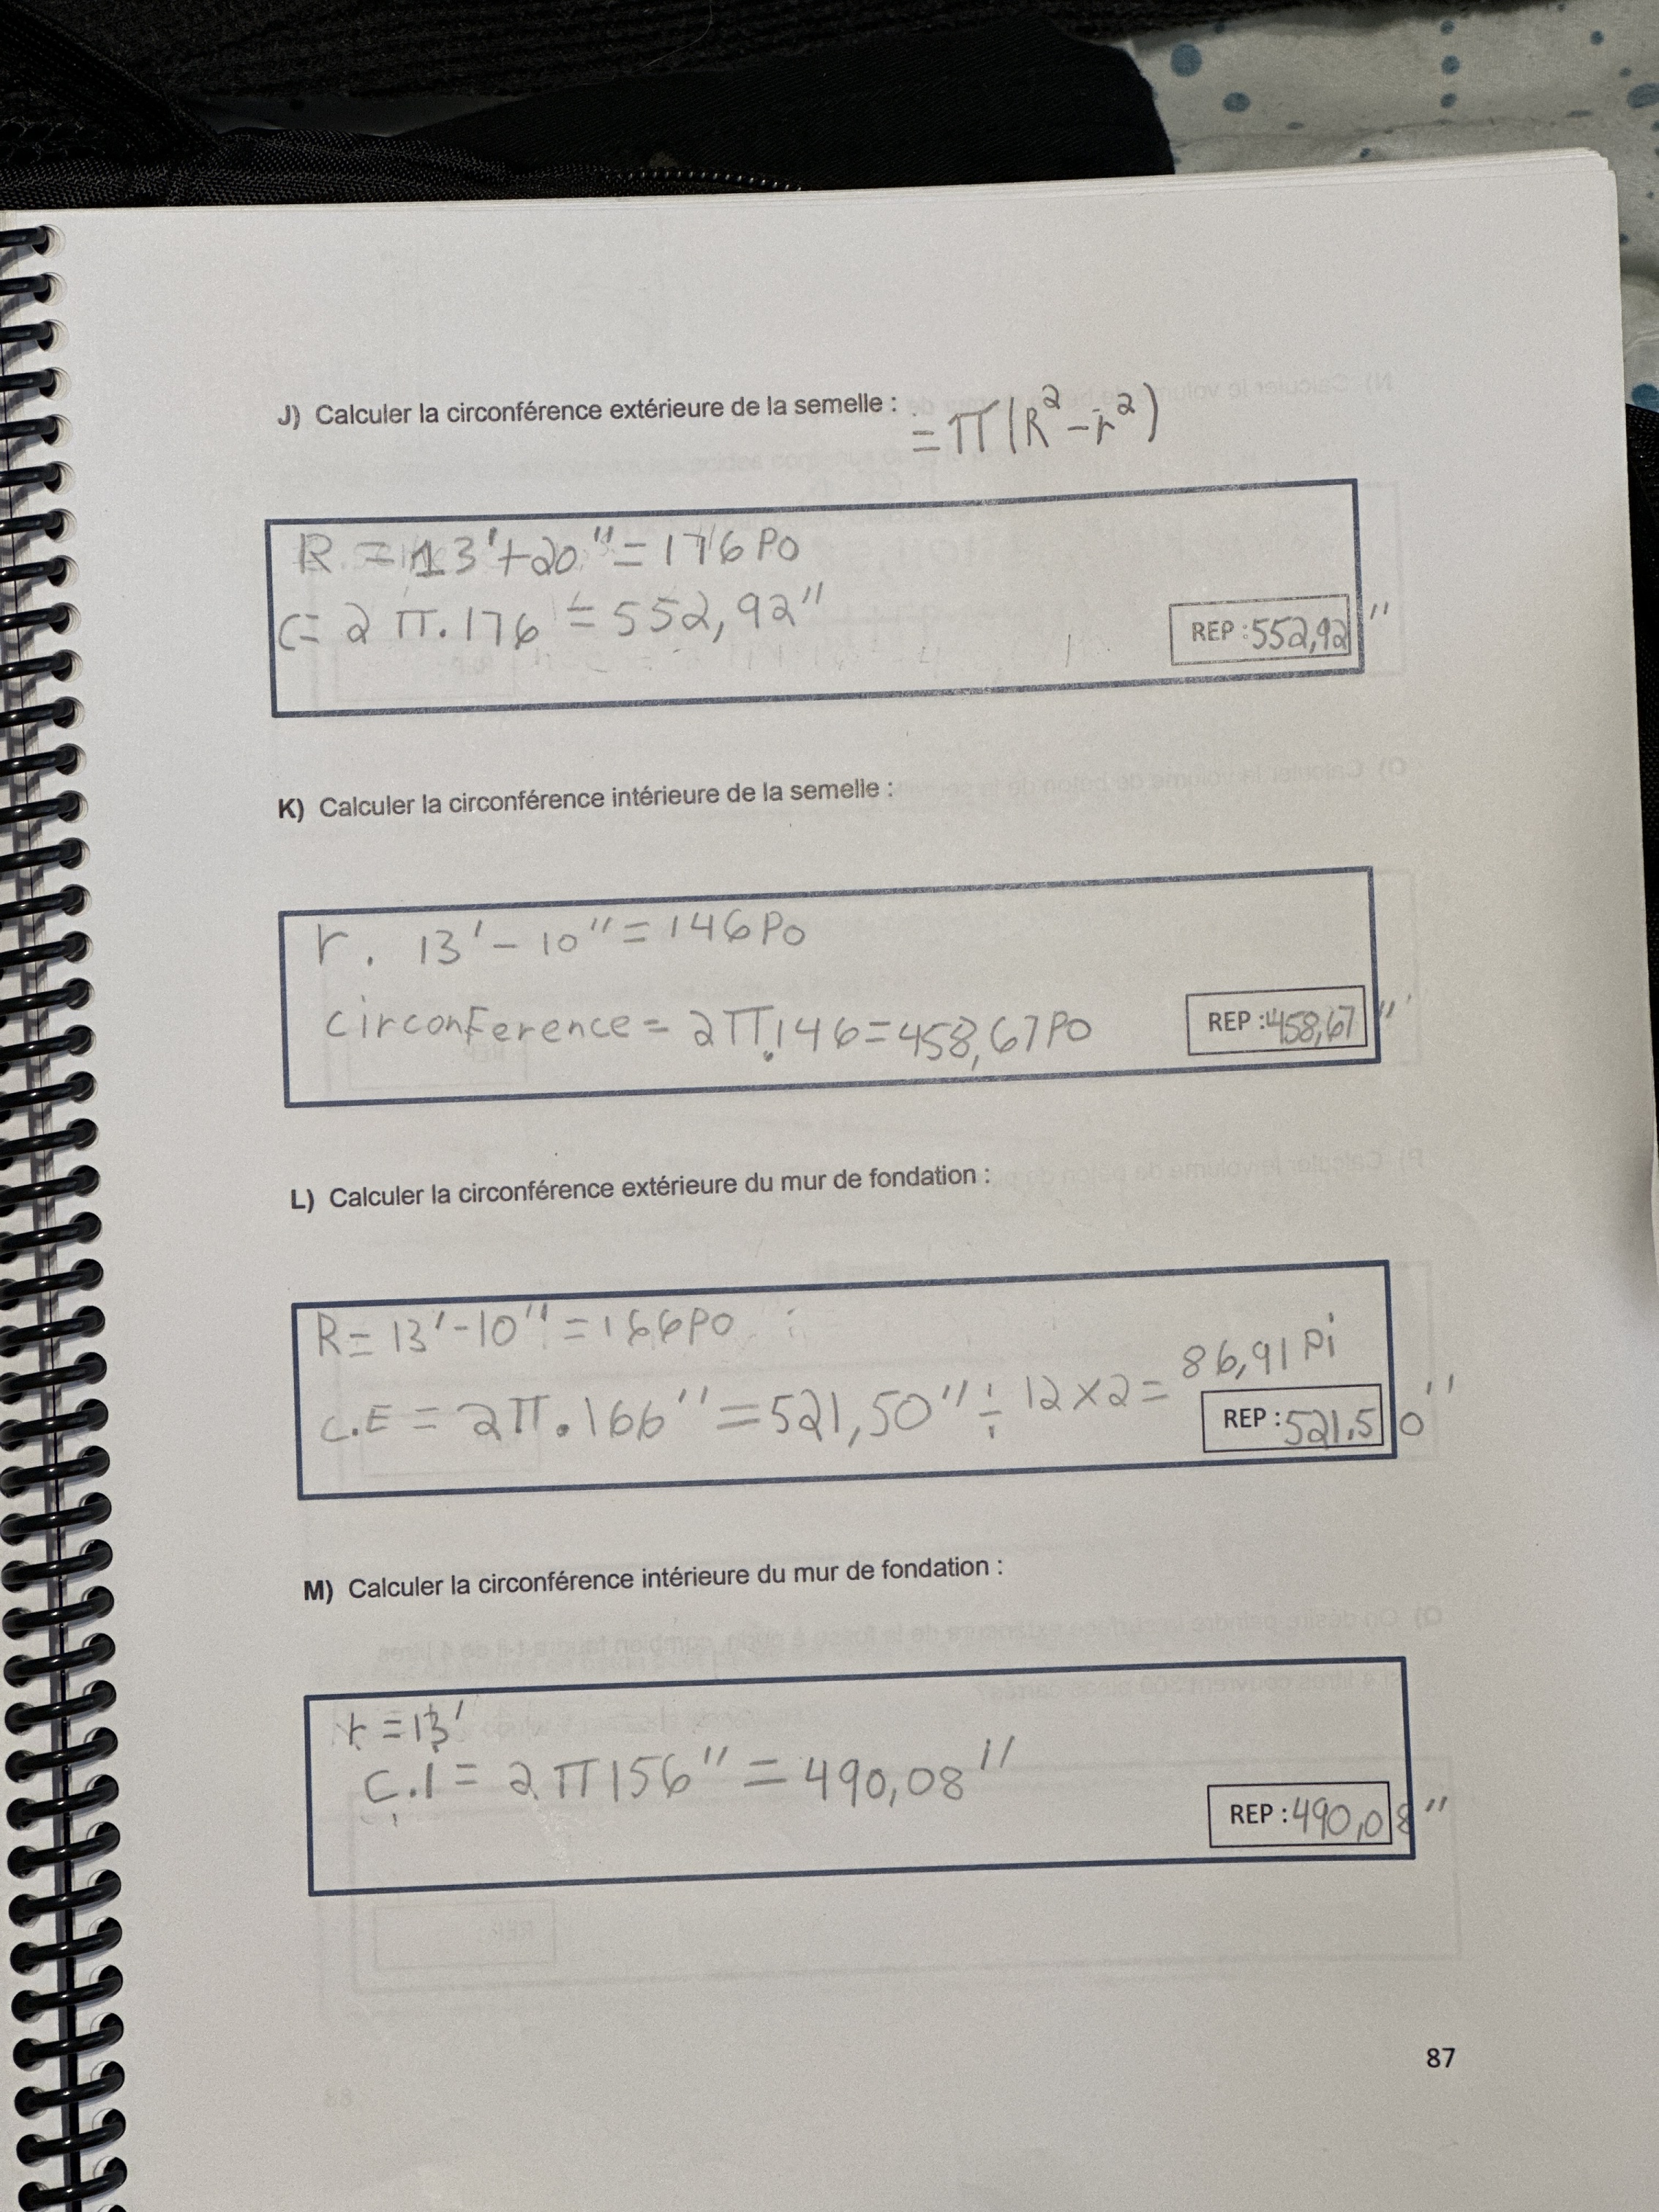 J) Calculer la circonférence extérieure de la semelle : = π(R²-r²)
R = 13'+20"=176 Po
C= 2 π.176 = 552,92"
REP :552,92"
K) Calculer la circonférence intérieure de la semelle :
r. 13'- 10"=146 Po
circonFerence = 2π.146=458,67 PO
REP :458,67"
L) Calculer la circonférence extérieure du mur de fondation :
R= 13'-10" =166PO
86,91 Pi
C.E = 2π.166"=521,50"÷12x2=
REP :521,50"
M) Calculer la circonférence intérieure du mur de fondation :
r =13'
C.I = 2π156" = 490,08"
REP :490,08"
87